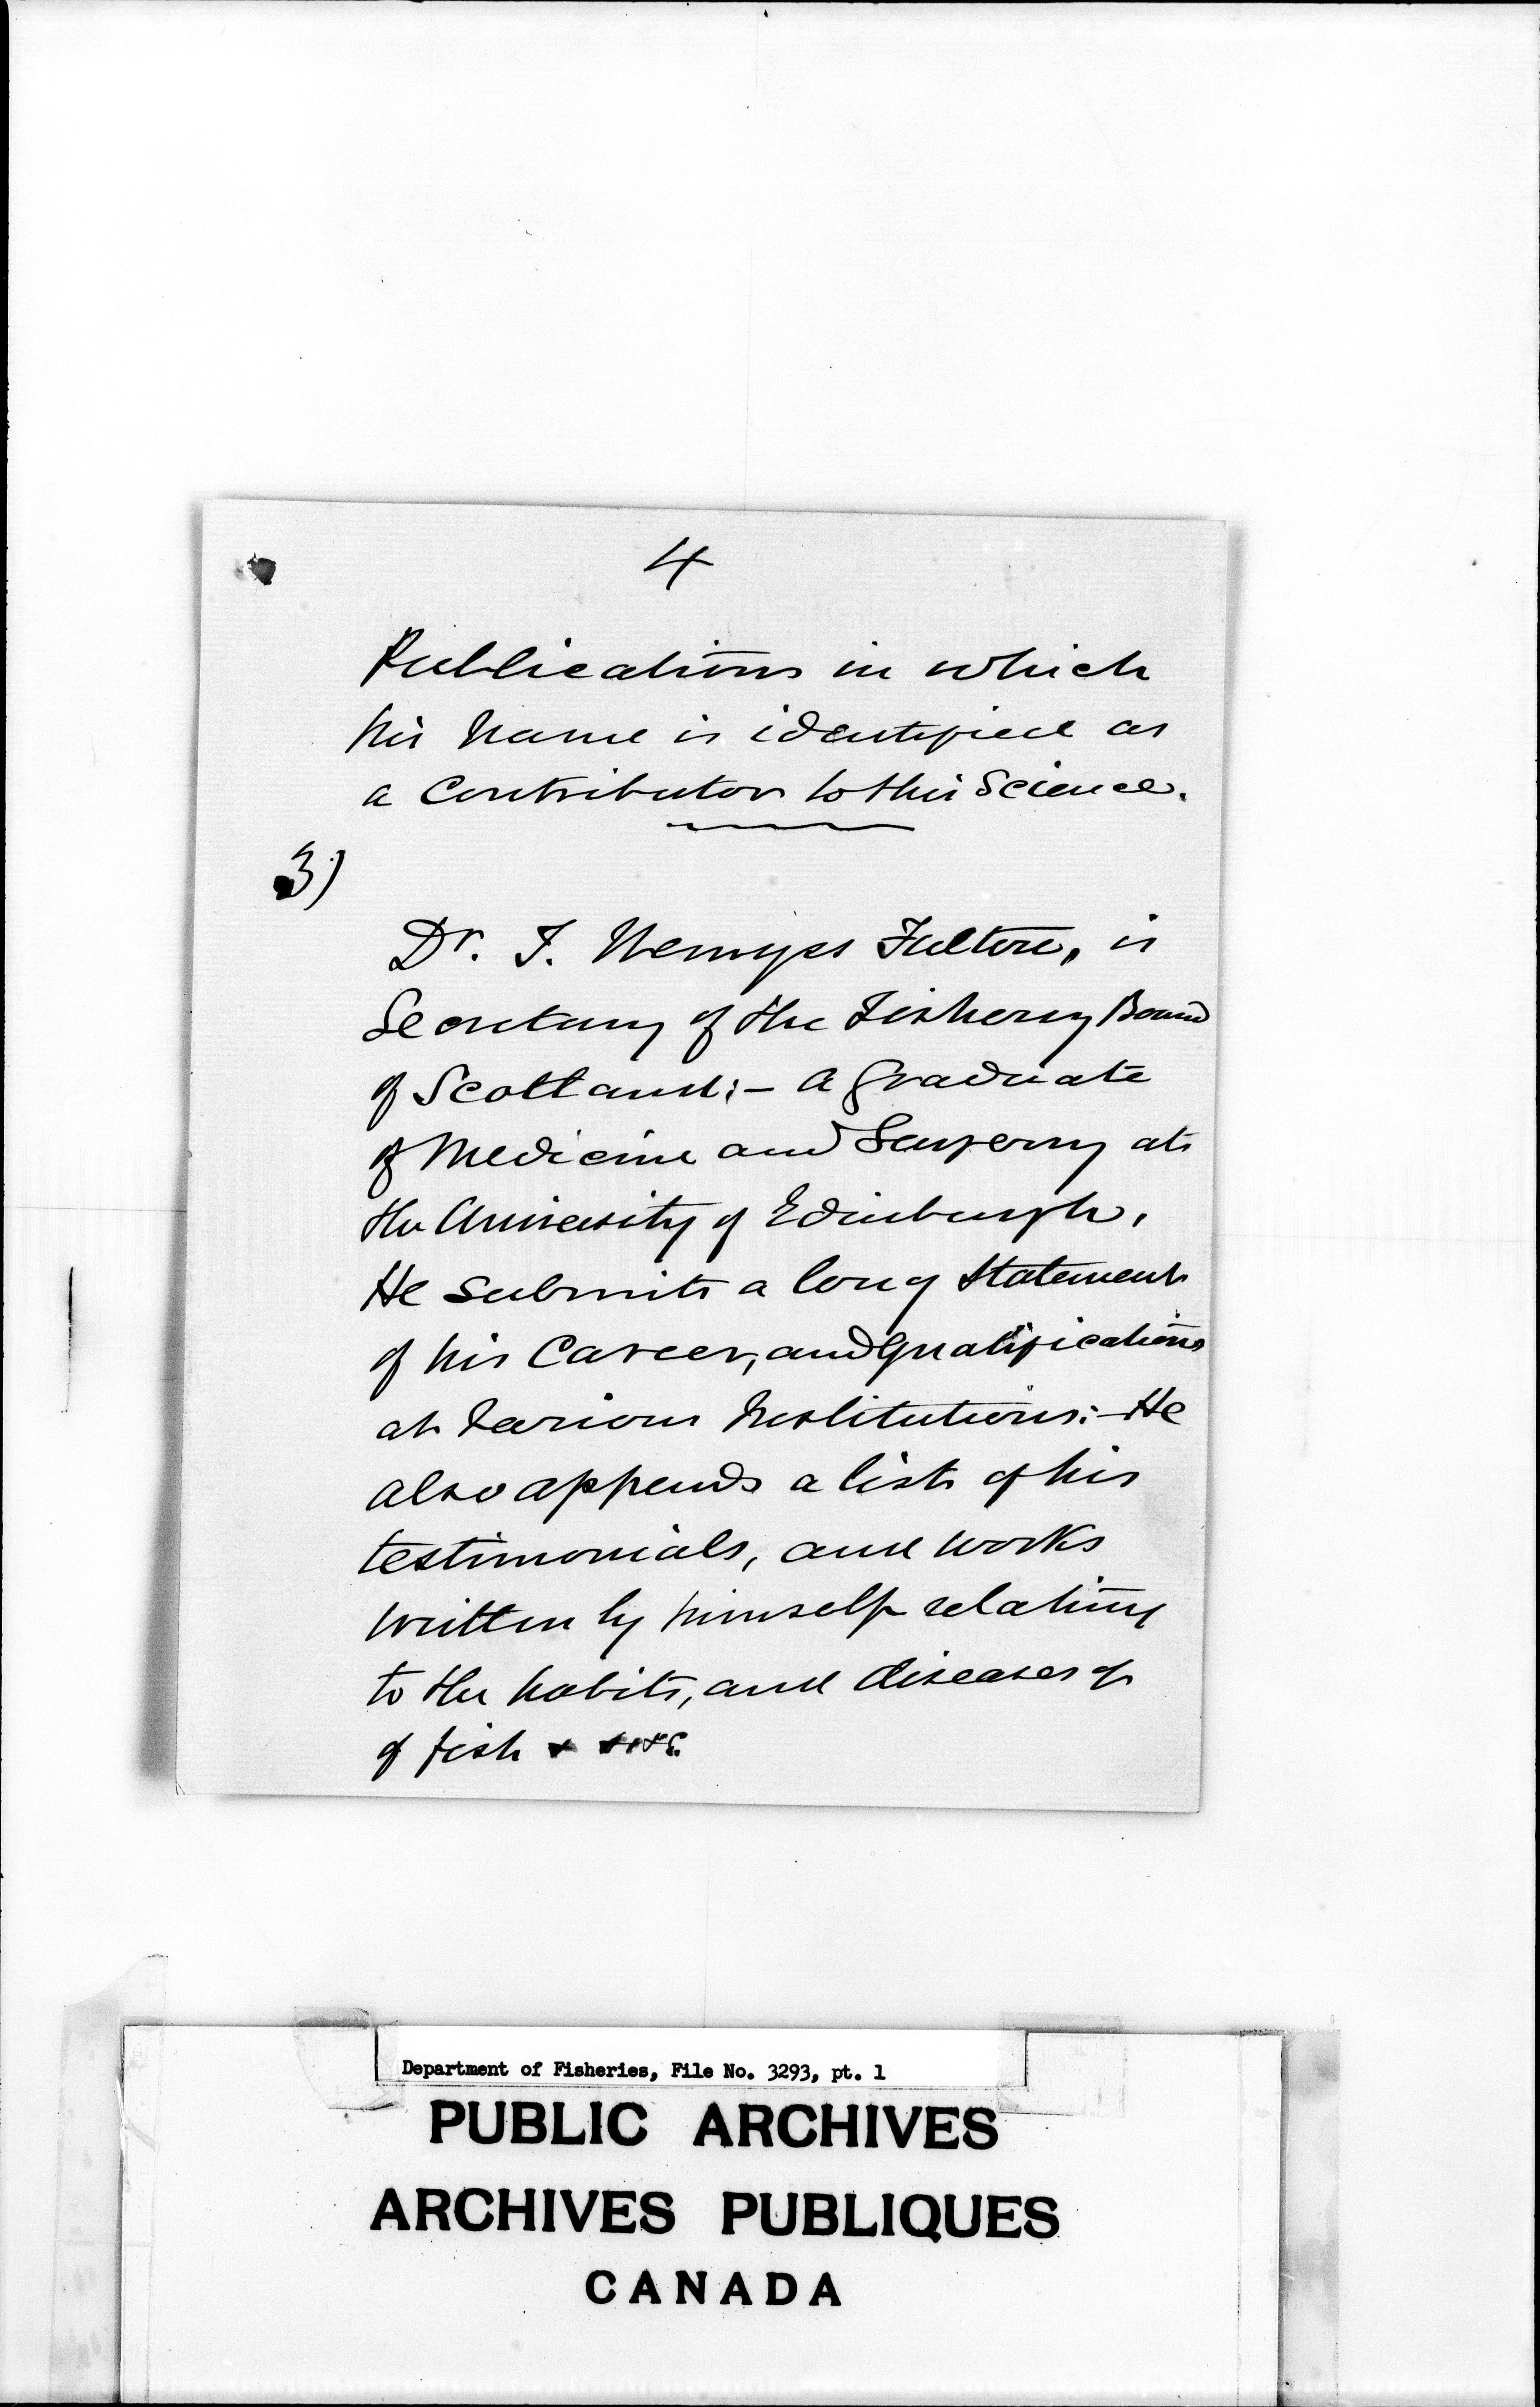 4
Publications in which
his name is identified as
a Contributor to this Science.
3)
Dr. T. Wemyss Fulton, is
Secretary of the Fishery Board
of Scotland:- a graduate
of Medicine and Surgery at
the University of Edinburgh,
He submits a long statement
of his Career, and qualifications
at various Institutions:- He
also appends a list of his
testimonials, and works
written by himself relating
to the habits, and diseases of
of fish
Department of Fisheries, File No. 3293, pt. 1
PUBLIC ARCHIVES
ARCHIVES PUBLIQUES
CANADA